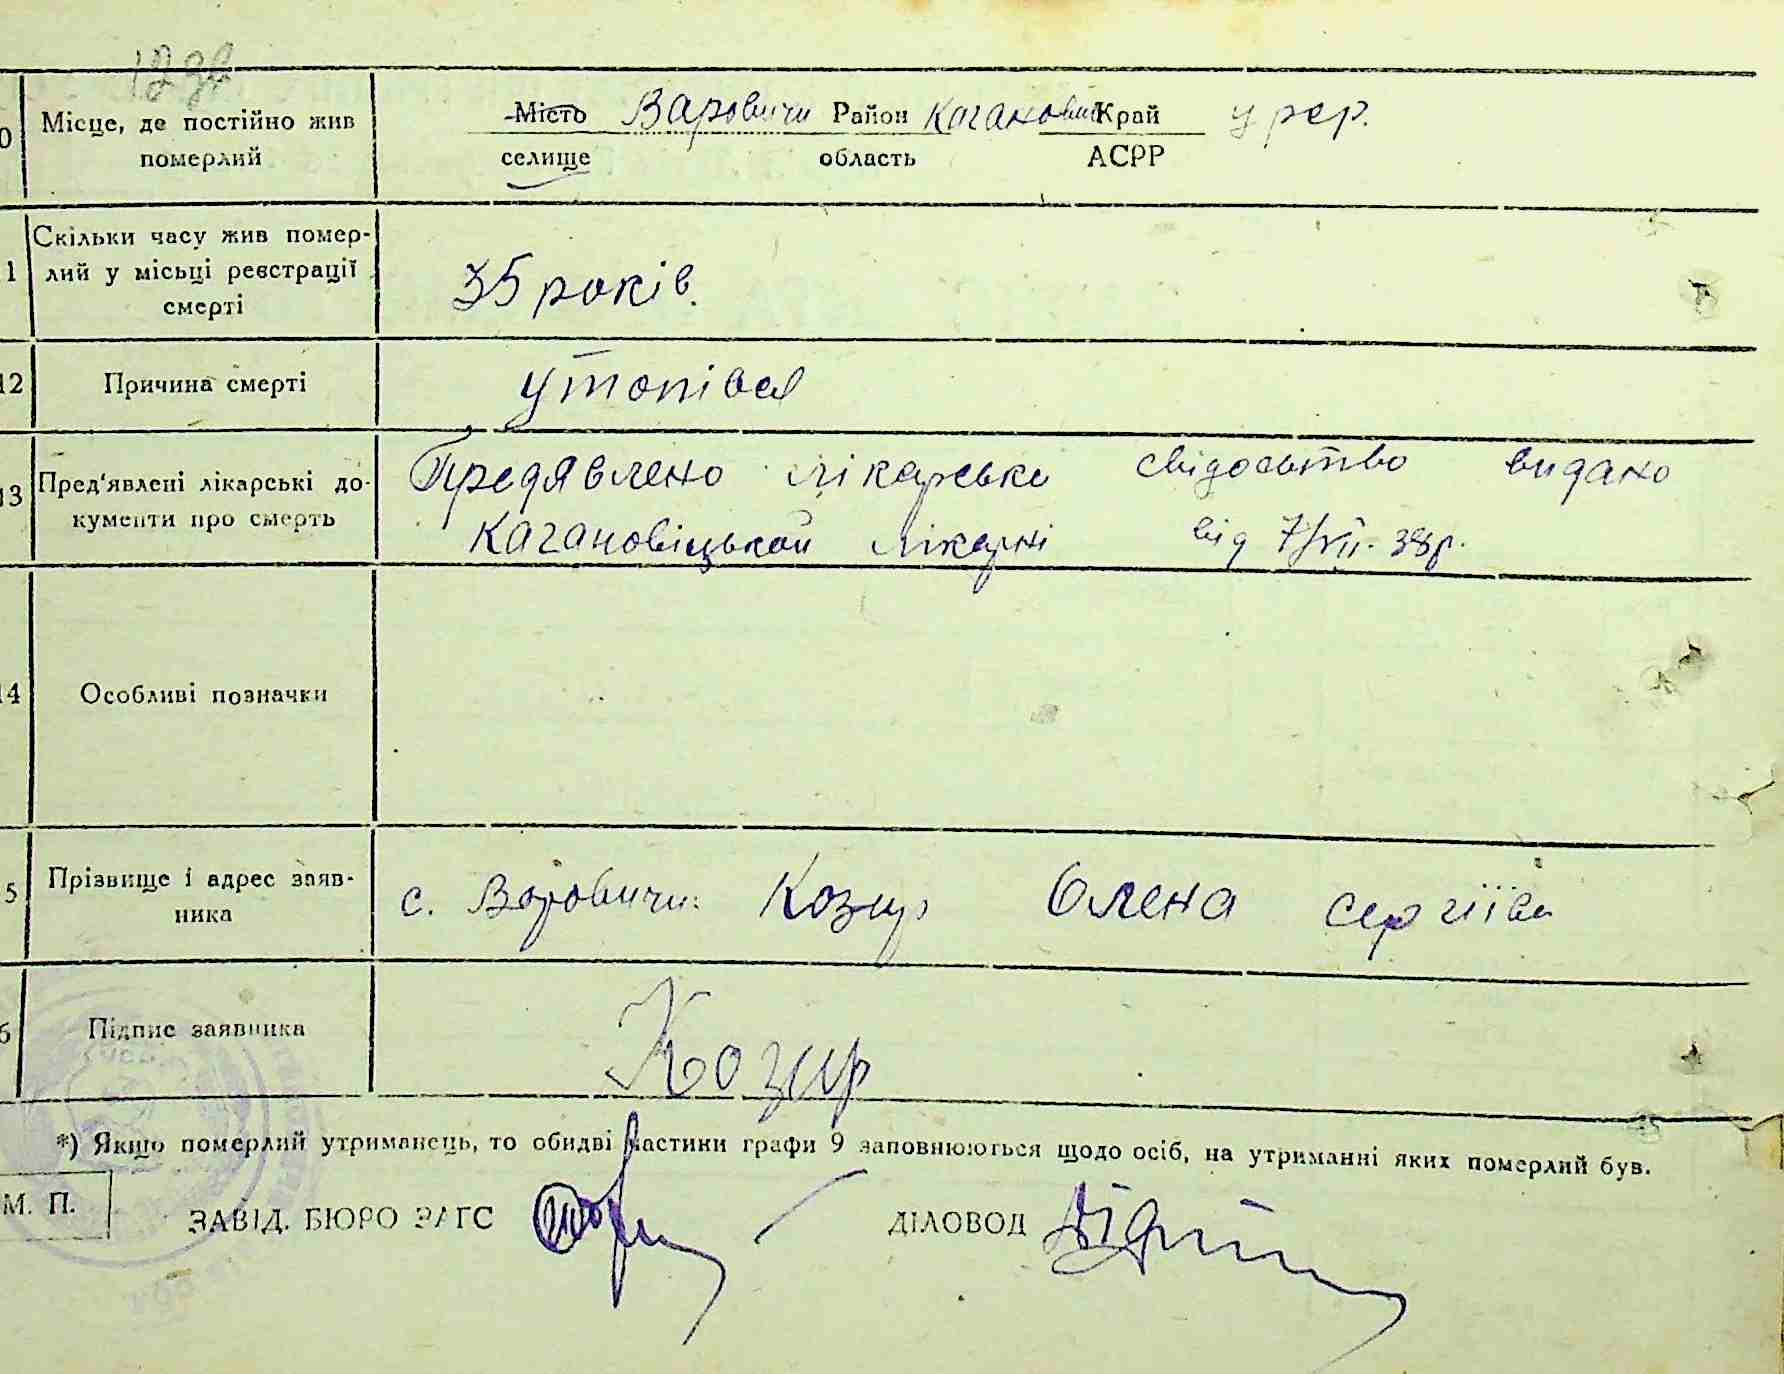 Місце, де постійно жив
померлий
Місто Варовичи Район Каганович Край урср.
селище область АСРР
Скільки часу жив помер-
лий у місьці реєстрації
смерті
35 років.
12 Причина смерті утопівся
13 Пред'явлені лікарські до-
кументи про смерть
Предявлено лікарське свідоцтво видано
Кагановіцькой лікарні від 7/VII. 38р.
14 Особливі позначки
5 Прізвище і адрес заяв-
ника
с. Варовичи. Козир Олена Сергіївн
6 Підпис заявника Козир
*) Якщо померлий утриманець, то обидві частини графи 9 заповнюються щодо осіб, на утриманні яких померлий був.
М. П.
ЗАВІД. БЮРО ЗАГС ДІЛОВОД